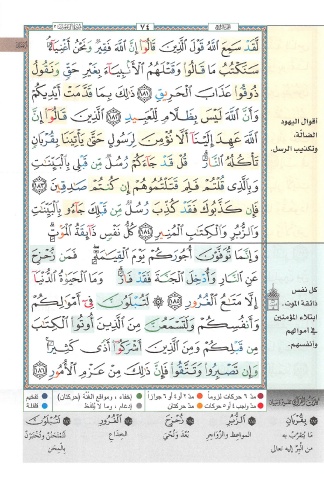 ٧٤
لَّقَدْ سَمِعَ اللَّهُ قَوْلَ الَّذِينَ قَالُوا إِنَّ اللَّهَ فَقِيرٌ وَنَحْنُ أَغْنِيَاءُ
سَنَكْتُبُ مَا قَالُوا وَقَتْلَهُمُ الْأَنبِيَاءَ بِغَيْرِ حَقٍّ وَنَقُولُ
ذُوقُوا عَذَابَ الْحَرِيقِ ١٨١ ذَلِكَ بِمَا قَدَّمَتْ أَيْدِيكُمْ
وَأَنَّ اللَّهَ لَيْسَ بِظَلَّامٍ لِّلْعَبِيدِ ١٨٢ الَّذِينَ قَالُوا إِنَّ
اللَّهَ عَهِدَ إِلَيْنَا أَلَّا نُؤْمِنَ لِرَسُولٍ حَتَّى يَأْتِيَنَا بِقُرْبَانٍ
تَأْكُلُهُ النَّارُ قُلْ قَدْ جَاءَكُمْ رُسُلٌ مِّن قَبْلِي بِالْبَيِّنَاتِ
وَبِالَّذِي قُلْتُمْ فَلِمَ قَتَلْتُمُوهُمْ إِن كُنتُمْ صَادِقِينَ ١٨٣
فَإِن كَذَّبُوكَ فَقَدْ كُذِّبَ رُسُلٌ مِّن قَبْلِكَ جَاءُو بِالْبَيِّنَاتِ
وَالزُّبُرِ وَالْكِتَابِ الْمُنِيرِ ١٨٤ كُلُّ نَفْسٍ ذَائِقَةُ الْمَوْتِ
وَإِنَّمَا تُوَفَّوْنَ أُجُورَكُمْ يَوْمَ الْقِيَامَةِ فَمَن زُحْزِحَ
عَنِ النَّارِ وَأُدْخِلَ الْجَنَّةَ فَقَدْ فَازَ وَمَا الْحَيَاةُ الدُّنْيَا
إِلَّا مَتَاعُ الْغُرُورِ ١٨٥ لَتُبْلَوُنَّ فِي أَمْوَالِكُمْ
وَأَنفُسِكُمْ وَلَتَسْمَعُنَّ مِنَ الَّذِينَ أُوتُوا الْكِتَابَ
مِن قَبْلِكُمْ وَمِنَ الَّذِينَ أَشْرَكُوا أَذًى كَثِيرًا
وَإِن تَصْبِرُوا وَتَتَّقُوا فَإِنَّ ذَلِكَ مِنْ عَزْمِ الْأُمُورِ ١٨٦
أقوال اليهود
الضالّة،
وتكذيب الرسل.
كل نفس
ذائقة الموت.
ابتلاء المؤمنين
في أموالهم
وأنفسهم.
مدّ ٦ حركات لزوماً مدّ ٢ أو ٤ أو ٦ جوازاً إخفاء، ومواقع الغُنّة (حركتان) تفخيم
مدّ واجب ٤ أو ٥ حركات مدّ حركتان إدغام، وما لا يُلفظ قلقلة
بِقُرْبَانٍ
ما يُتقرّب به
من البِرّ إليه تعالى
الزُّبُرِ
المواعظ والزواجر
زُحْزِحَ
بَعُدَ ونُحّي
الْغُرُورِ
الخداع
لَتُبْلَوُنَّ
لتُمتحنُنّ وتُختبرُنّ
بالمِحَن